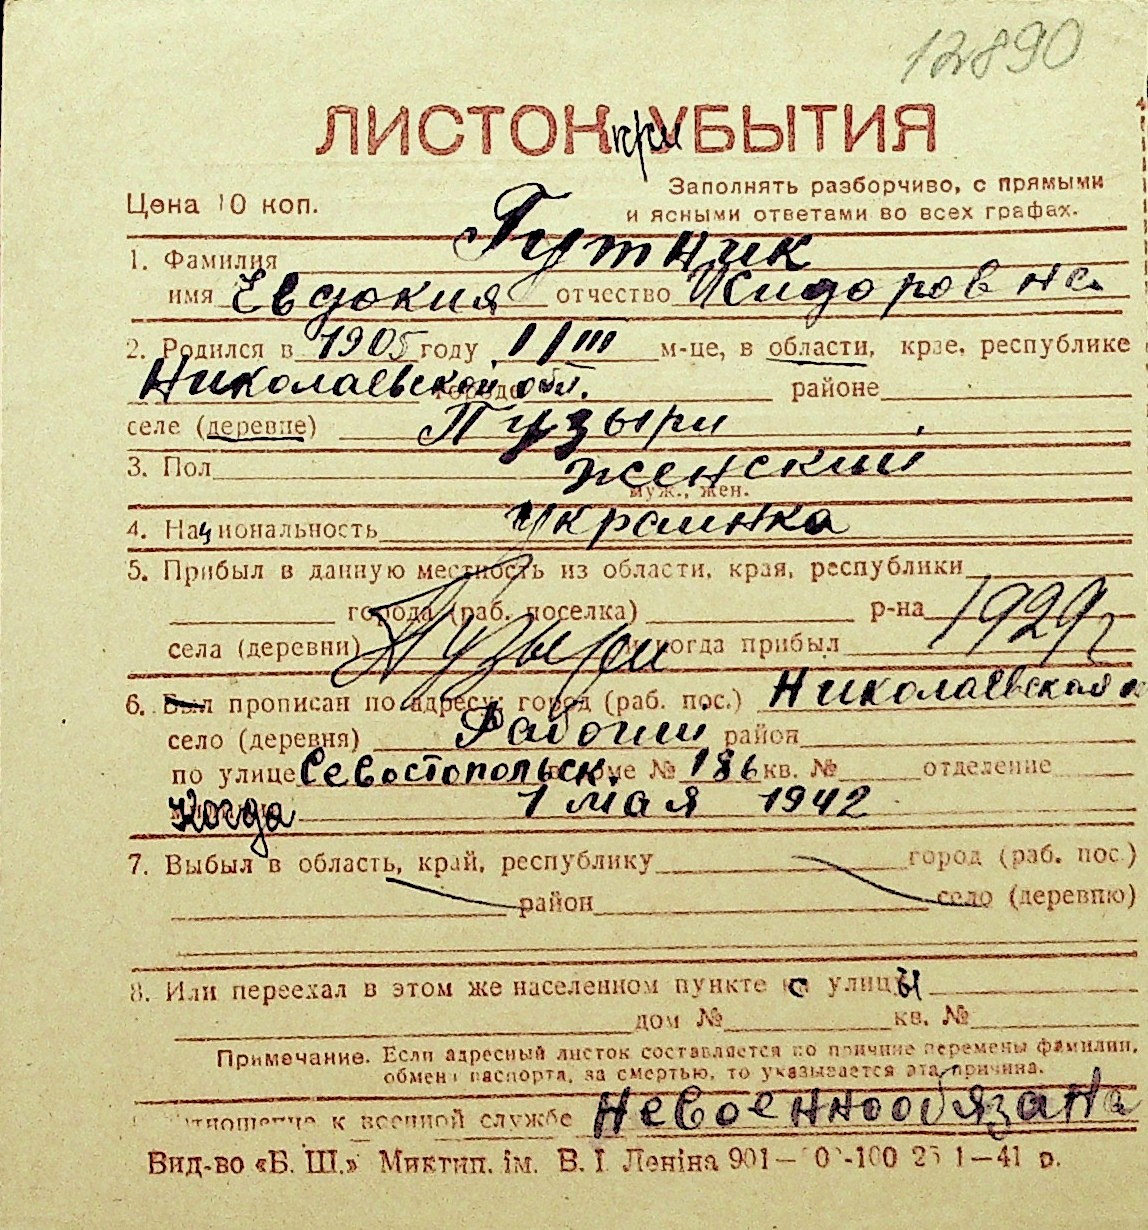 12890
ЛИСТОК при УБЫТИЯ
Цена 10 коп.
Заполнять разборчиво, с прямыми
и ясными ответами во всех графах.
1. Фамилия Гутник
имя Евдокия отчество Исидоровна
2. Родился в 1905 году 1/III м-це, в области, крае, республике
Николаевской обл. городе районе
селе (деревне) Пузыри
3. Пол женский
муж., жен.
4. Национальность Украинка
5. Прибыл в данную местность из области, края, республики
города (раб. поселка) р-на
села (деревни) Пузыри и когда прибыл 1929 г
6. Был прописан по адресу: город (раб. пос.) Николаевская
село (деревня) Рабочий район
по улице Севостопольск. в доме № 186 кв. № отделение
Когда 1 мая 1942
7. Выбыл в область, край, республику город (раб. пос.)
район село (деревню)
8. Или переехал в этом же населенном пункте с улицы
дом № кв. №
Примечание. Если адресный листок составляется по причине перемены фамилии,
обмена паспорта, за смертью, то указывается эта причина.
Отношение к военной службе Невоеннообязана
Вид-во «Б. Ш.» Миктип. ім. В. І. Леніна 901— -100 1—41 р.